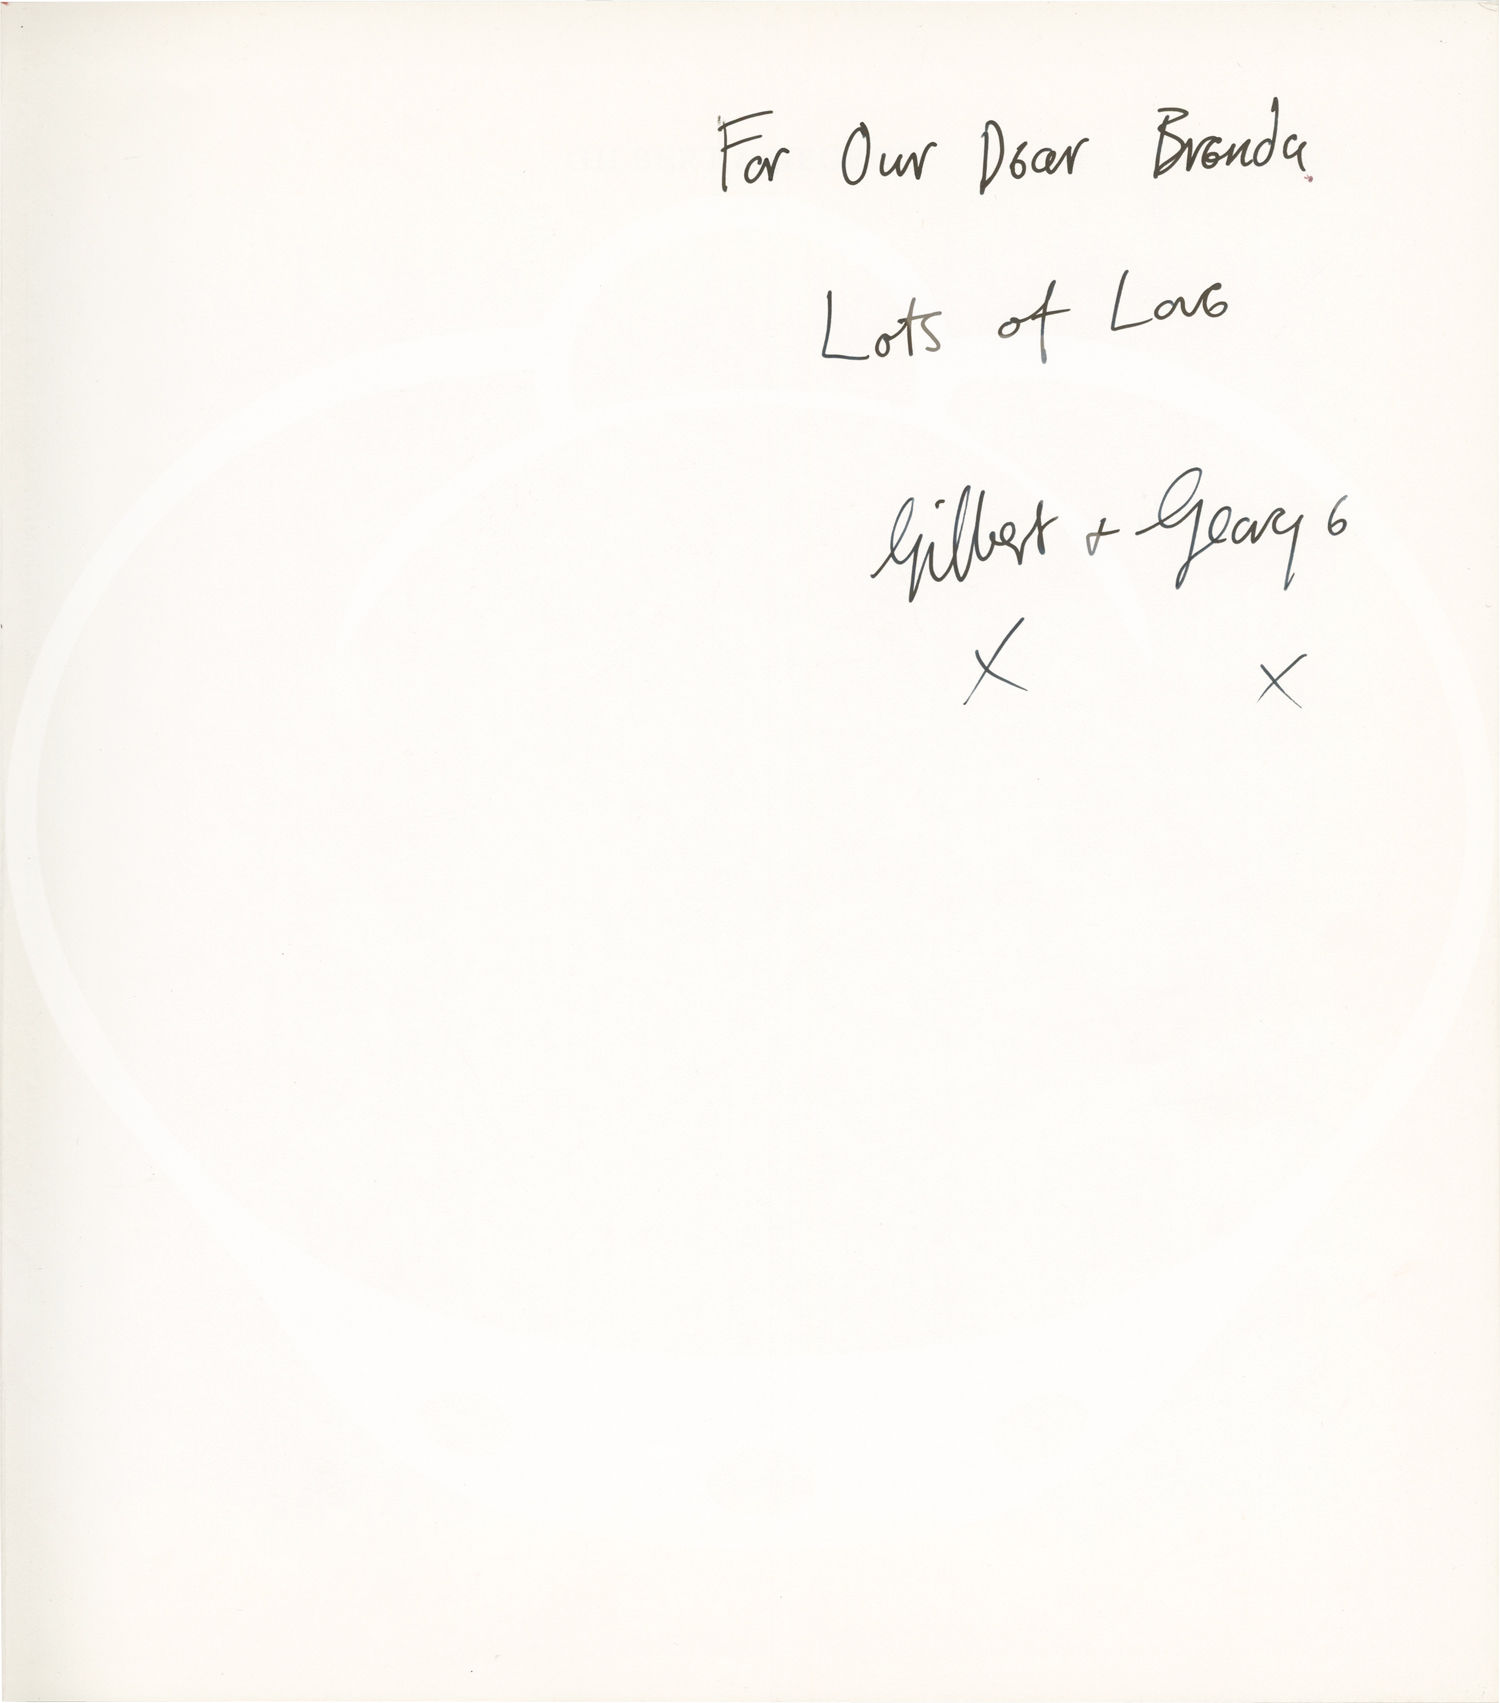 For Our Dear Brenda
Lots of Love
Gilbert + George
X X